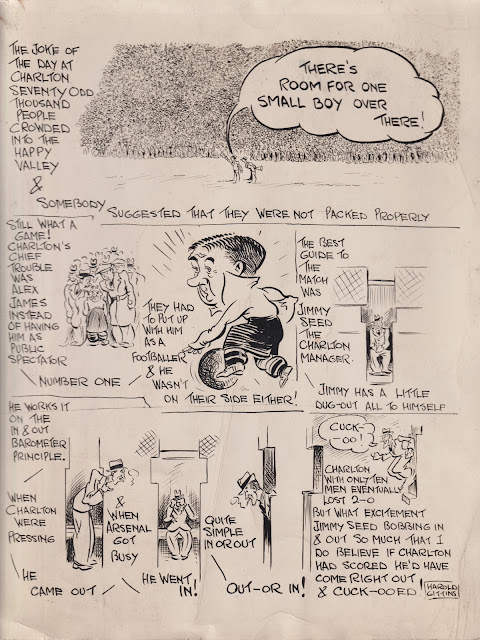 THE JOKE OF
THE DAY AT
CHARLTON
SEVENTY ODD
THOUSAND
PEOPLE
CROWDED
INTO THE
HAPPY
VALLEY
&
SOMEBODY
SUGGESTED THAT THEY WERE NOT PACKED PROPERLY
THERE'S
ROOM FOR ONE
SMALL BOY OVER
THERE!
STILL WHAT A
GAME!
CHARLTON'S
CHIEF
TROUBLE
WAS
ALEX
JAMES
INSTEAD
OF HAVING
HIM AS
PUBLIC
SPECTATOR
NUMBER ONE
THEY HAD
TO PUT UP
WITH HIM
AS A
FOOTBALLER
& HE
WASN'T
ON THEIR SIDE EITHER!
THE BEST
GUIDE TO
THE
MATCH
WAS
JIMMY
SEED
THE
CHARLTON
MANAGER.
JIMMY HAS A LITTLE
DUG-OUT ALL TO HIMSELF
HE WORKS IT
ON THE
IN & OUT
BAROMETER
PRINCIPLE.
WHEN
CHARLTON
WERE
PRESSING
HE
CAME OUT
&
WHEN
ARSENAL
GOT
BUSY
HE WENT
IN!
QUITE
SIMPLE
IN OR OUT
OUT-OR IN!
CUCK-
OO!
CHARLTON
WITH ONLY TEN
MEN EVENTUALLY
LOST 2-0
BUT WHAT EXCITEMENT
JIMMY SEED BOBBING IN
& OUT SO MUCH THAT I
DO BELIEVE IF CHARLTON
HAD SCORED HE'D HAVE
COME RIGHT OUT
& CUCK-OOED!
HAROLD
GITTINS